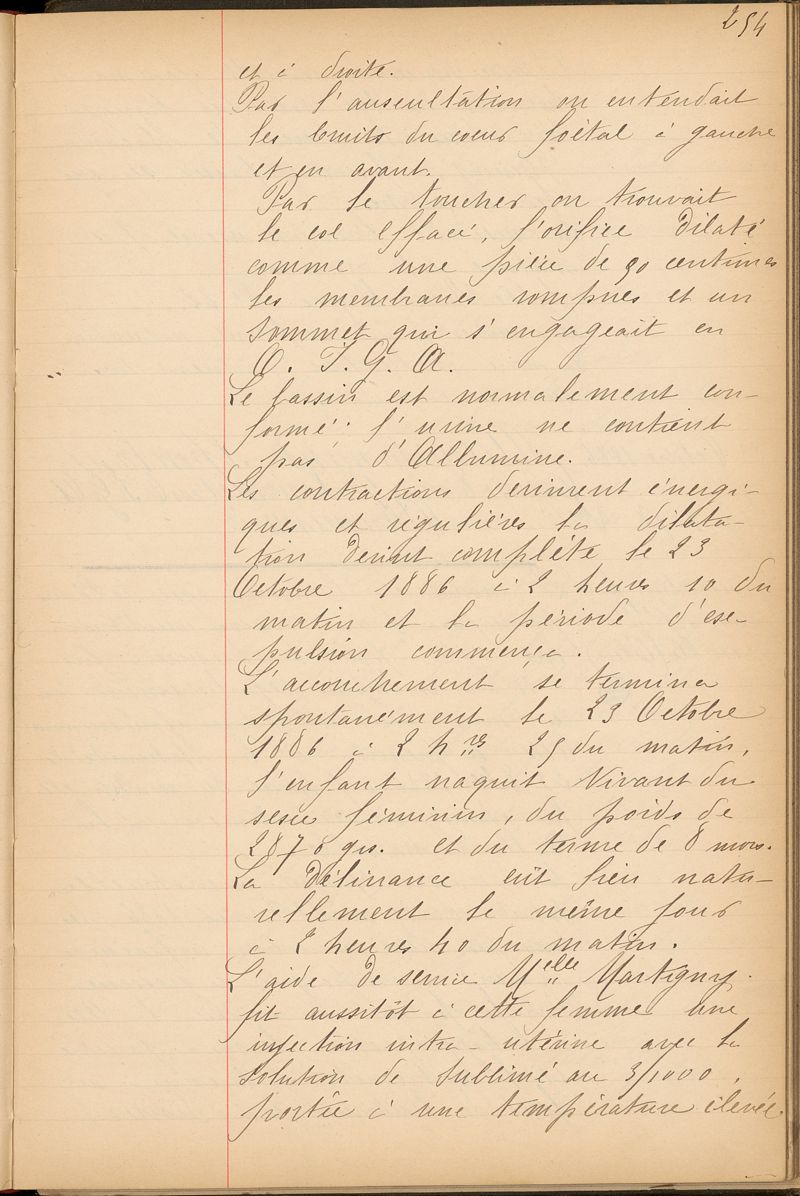 254
et à droite.
Par l'auscultation on entendait
les bruits du coeur foetal à gauche
et en avant.
Par le toucher on trouvait
le col effacé, l'orifice dilaté
comme une pièce de 50 centimes
les membranes rompues et un
sommet qui s'engageait en
O. I. G. A.
Le bassin est normalement con-
formé; l'urine ne contient
pas d'Albumine.
Les contractions devinrent énergi-
ques et régulières la dilata-
tion devint complète le 23
Octobre 1886 à 2 heures 10 du
matin et la période d'ex-
pulsion commença.
L'accouchement se termina
spontanément le 23 Octobre
1886 à 2 hres 25 du matin,
l'enfant naquit vivant du
sexe féminin, du poids de
2870 grs. et du terme de 8 mois.
La délivrance eût lieu natu-
rellement le même jour
à 2 heures 40 du matin.
L'aide de service Melle Martigny
fit aussitôt à cette femme une
injection intra-utérine avec la
solution de sublimé au 3/1000,
portée à une température élevée.